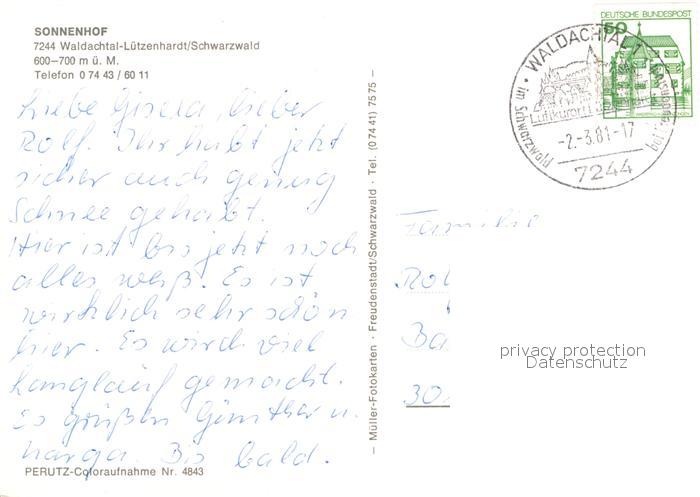 SONNENHOF
7244 Waldachtal-Lützenhardt/Schwarzwald
600–700 m ü. M.
Telefon 0 74 43 / 60 11
Liebe Gisela, lieber
Rolf. Ihr habt jetzt
sicher auch genug
Schnee gehabt.
Hier ist bis jetzt noch
alles weiß. Es ist
wirklich sehr schön
hier. Es wird viel
Langlauf gemacht.
Es grüßen Günther u.
Marga. Bis bald.
PERUTZ-Coloraufnahme Nr. 4843
– Müller-Fotokarten · Freudenstadt/Schwarzwald · Tel. (07441) 7575 –
DEUTSCHE BUNDESPOST
50
WALDACHTAL 1
Luftkurort
im Schwarzwald
-2.-3.81-17
7244
Familie
Rol
Ba
30
privacy protection
Datenschutz